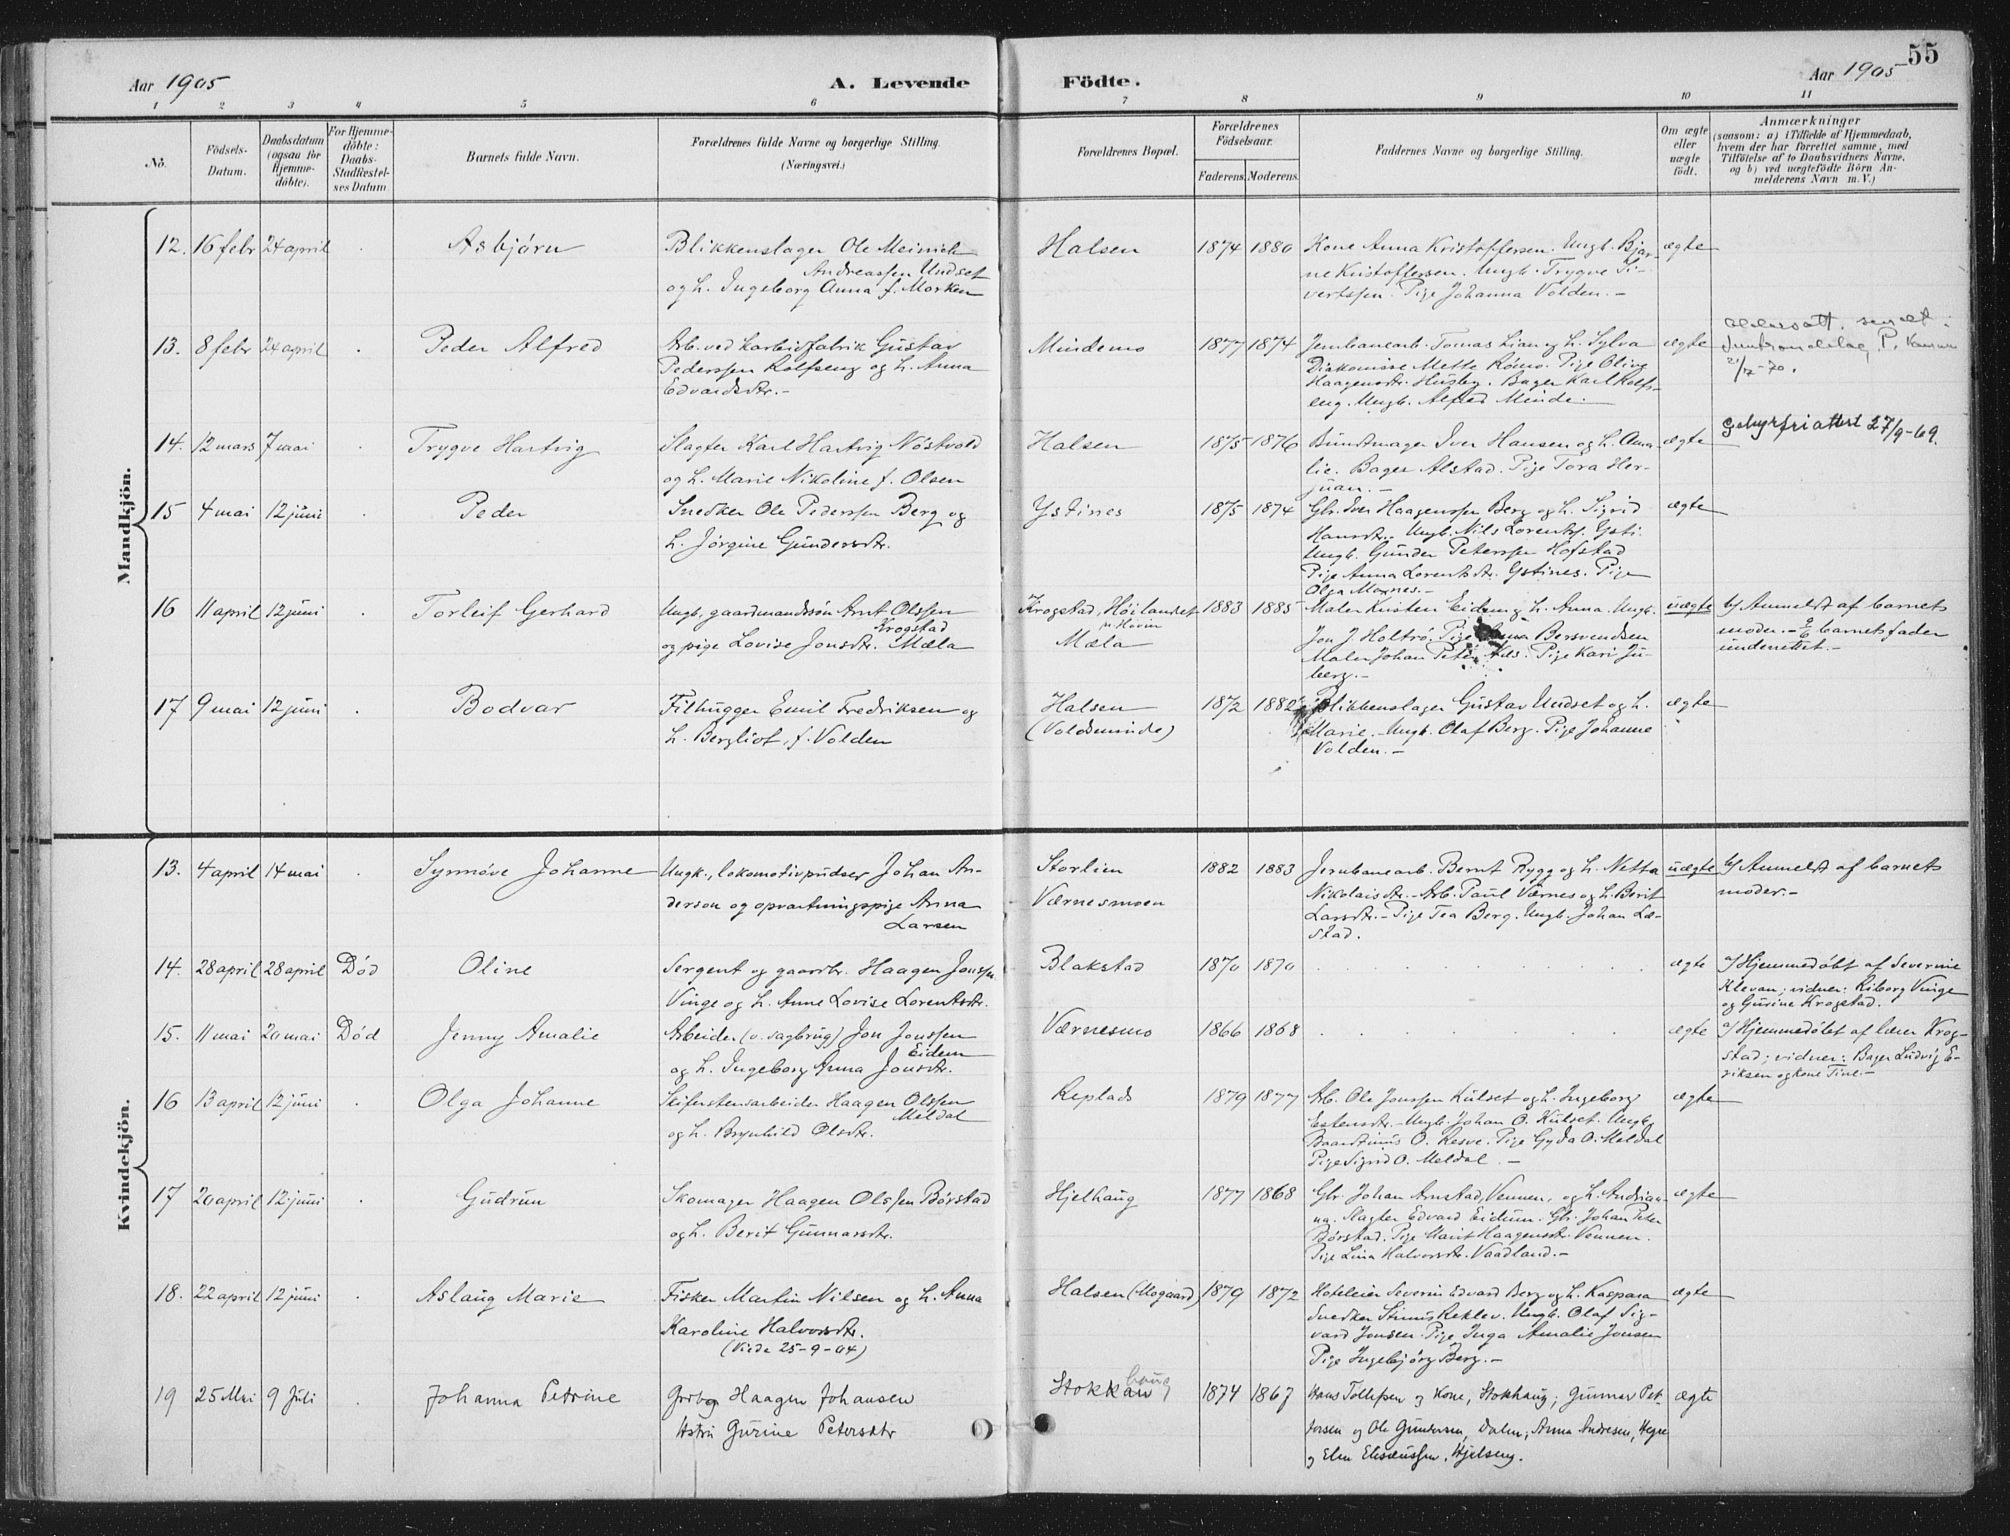 55
Aar 1905
A. Levende Födte.
Aar 1905
1 2 3 4 5 6 7 8 9 10 11
No.
Födsels-Datum.
Daabsdatum (ogsaa for Hjemme-döbte).
For Hjemme-döbte: Daabs-Stadfæstel-ses Datum
Barnets fulde Navn.
Forældrenes fulde Navne og borgerlige Stilling. (Næringsvei.)
Forældrenes Bopæl.
Forældrenes Födselsaar.
Faderens. Moderens.
Faddernes Navne og borgerlige Stilling.
Om ægte eller uægte födt.
Anmærkninger
(saasom: a) i Tilfælde af Hjemmedaab,
hvem der har forrettet samme, med
Tilföielse af to Daabsvidners Navne,
og b) ved uægtefödte Börn An-
melderens Navn m.V.)
Mandkjön.
12. 16 febr 24 april Asbjörn Blikkenslager Ole Meinrich Halsen 1874 1880 Kone Anna Kristoffersen. Ungk. Bjar- ægte
Andreassen Undset ne Kristoffersen. Ungk. Trygve Si-
og h. Ingeborg Anna f. Morken vertssen. Pige Johanna Volden.-
13. 8 febr 24 april Peder Alfred Arb. ved karbidfabrik Gustav Mindemo 1877 1874 Jernbanearb. Tomas Lian og h. Sylva ægte
Pederssen Rolfseng og h. Anna Diakonisse Mette Römo. Pige Oline
Edvardsdtr.- Haagensdtr. Husby. Bager Karl Rolfs-
eng. Ungk. Alfred Minde.
21/12-70.
14. 12 mars 7 mai Trygve Hartvig Slagter Karl Hartvig Nöstvold Halsen 1875 1876 Buntmager Iver Hansen og h. Ama- ægte Gebyrfri attest 27/9-69.
og h. Marie Nikoline f. Olsen lie. Bager Alstad. Pige Tora Her-
juan.-
15 4 mai 12 juni Peder Snedker Ole Pederssen Berg og Ystines 1875 1874 Gbr. Iver Haagenssen Berg og h. Sigrid ægte
h. Jörgine Gundersdtr. Hansdtr. Ungk. Nils Lorents. Ysti.
Ungk. Gunder Peterssen Hofstad
Pige Anna Lorentsdtr. Ystines. Pige
Olga Moxnes.-
16 11 april 12 juni Torleif Gerhard Ungk, gaardmandssön Arnt Olssen Krogstad, Höilandet 1883 1885 Maler Kristen Eidem og h. Anna. Ungk. uægte b/ Anmeldt af barnets
Krogstad Jon J. Holtrö. Pige Bersvendsen moder.- 2/6 barnets fader
og pige Lovise Jonsdtr. Mæla Mæla Maler Johan Peter Nils. Pige Kari Ju- underrettet.-
berg.-
17 9 mai 12 juni Bodvar Filhugger Emil Fredriksen og Halsen 1872 1882 Blikkenslager Gustav Undset og h. ægte
h. Bergliot, f. Volden (Voldsminde) Marie.- Ungk. Olaf Berg. Pige Johanne
Volden.-
Kvindekjön.
13. 4 april 14 mai Synnöve Johanne Ungk., lokomotivpudser Johan An- Storlien 1882 1883 Jernbanearb. Bernt Rygg og h. Netta uægte b/ Anmeldt af barnets
derson og opvartningspige Anna Værnesmoen Nikolaisdtr.- Arb. Paul Værnes og h. Berit moder.-
Larsen Larsdtr.- Pige Tea Berg. Ungk. Johan Læ-
stad.
14. 28 april 28 april Död Oline Sergent og gaardbr. Haagen Jonssen Blakstad 1870 1870 ægte a/ Hjemmedöbt af Severine
Vinge og h. Anne Lovise Lorentsdtr. Klevan; vidner: Riborg Vinge
og Gurine Krogstad.
15. 11 mai 20 mai Död Jenny Amalie Arbeider (v. sagbrug) Jon Jonssen Værnesmo 1866 1868 ægte a/ Hjemmedöbt af lærer Krog-
Eidem stad; vidner: Bager Ludvig E-
og h. Ingeborg Anna Jonsdtr. riksen og kone Tine.-
16 13 april 12 juni Olga Johanne Skiferstensarbeider Haagen Olssen Replads 1879 1877 Arb. Ole Jonssen Kulset og h. Ingeborg ægte
Meldal Estensdtr. Ungk. Johan O. Kulset. Ungk.
og h. Brynhild Olsdtr. Baardinus O. Resve. Pige Gyda O. Meldal
Pige Sigrid O. Meldal.-
17 20 april 12 juni Gudrun Skomager Haagen Olssen Börstad Hjelhaug 1877 1868 Gbr. Johan Arnstad, Vennen, og h. Andrian- ægte
og h. Berit Gunnarsdtr. na. Slagter Edvard Eidum. Gbr. Johan Peter
Börstad. Pige Marit Haagensdtr. Vennen.
Pige Lina Halvorsdtr. Vaadland.-
18. 22 april 12 juni Aslaug Marie Fisker Martin Nilsen og h. Anna Halsen (Mogaard) 1879 1872 Hoteleier Severin Edvard Berg og h. Kaspara ægte
Karoline Halvorsdtr. Snedker Rektev. Ungk. Olaf Sig-
(Viede 25-9-04) vard Jensen. Pige Inga Amalie Jensen
Pige Ingebjörg Berg.-
19 25 Mai 9 Juli Johanna Petrine Grbr. Haagen Johansen Stokkan haug 1874 1867 Hans Tollefsen og Kone, Stokhaug; Gunnar Pet- ægte
Hstru Gurine Petersdtr tersen og Ole Gundersen, Dalen; Anna Andresen, Hegre
og Elen Eliseussen, Hjelseng.